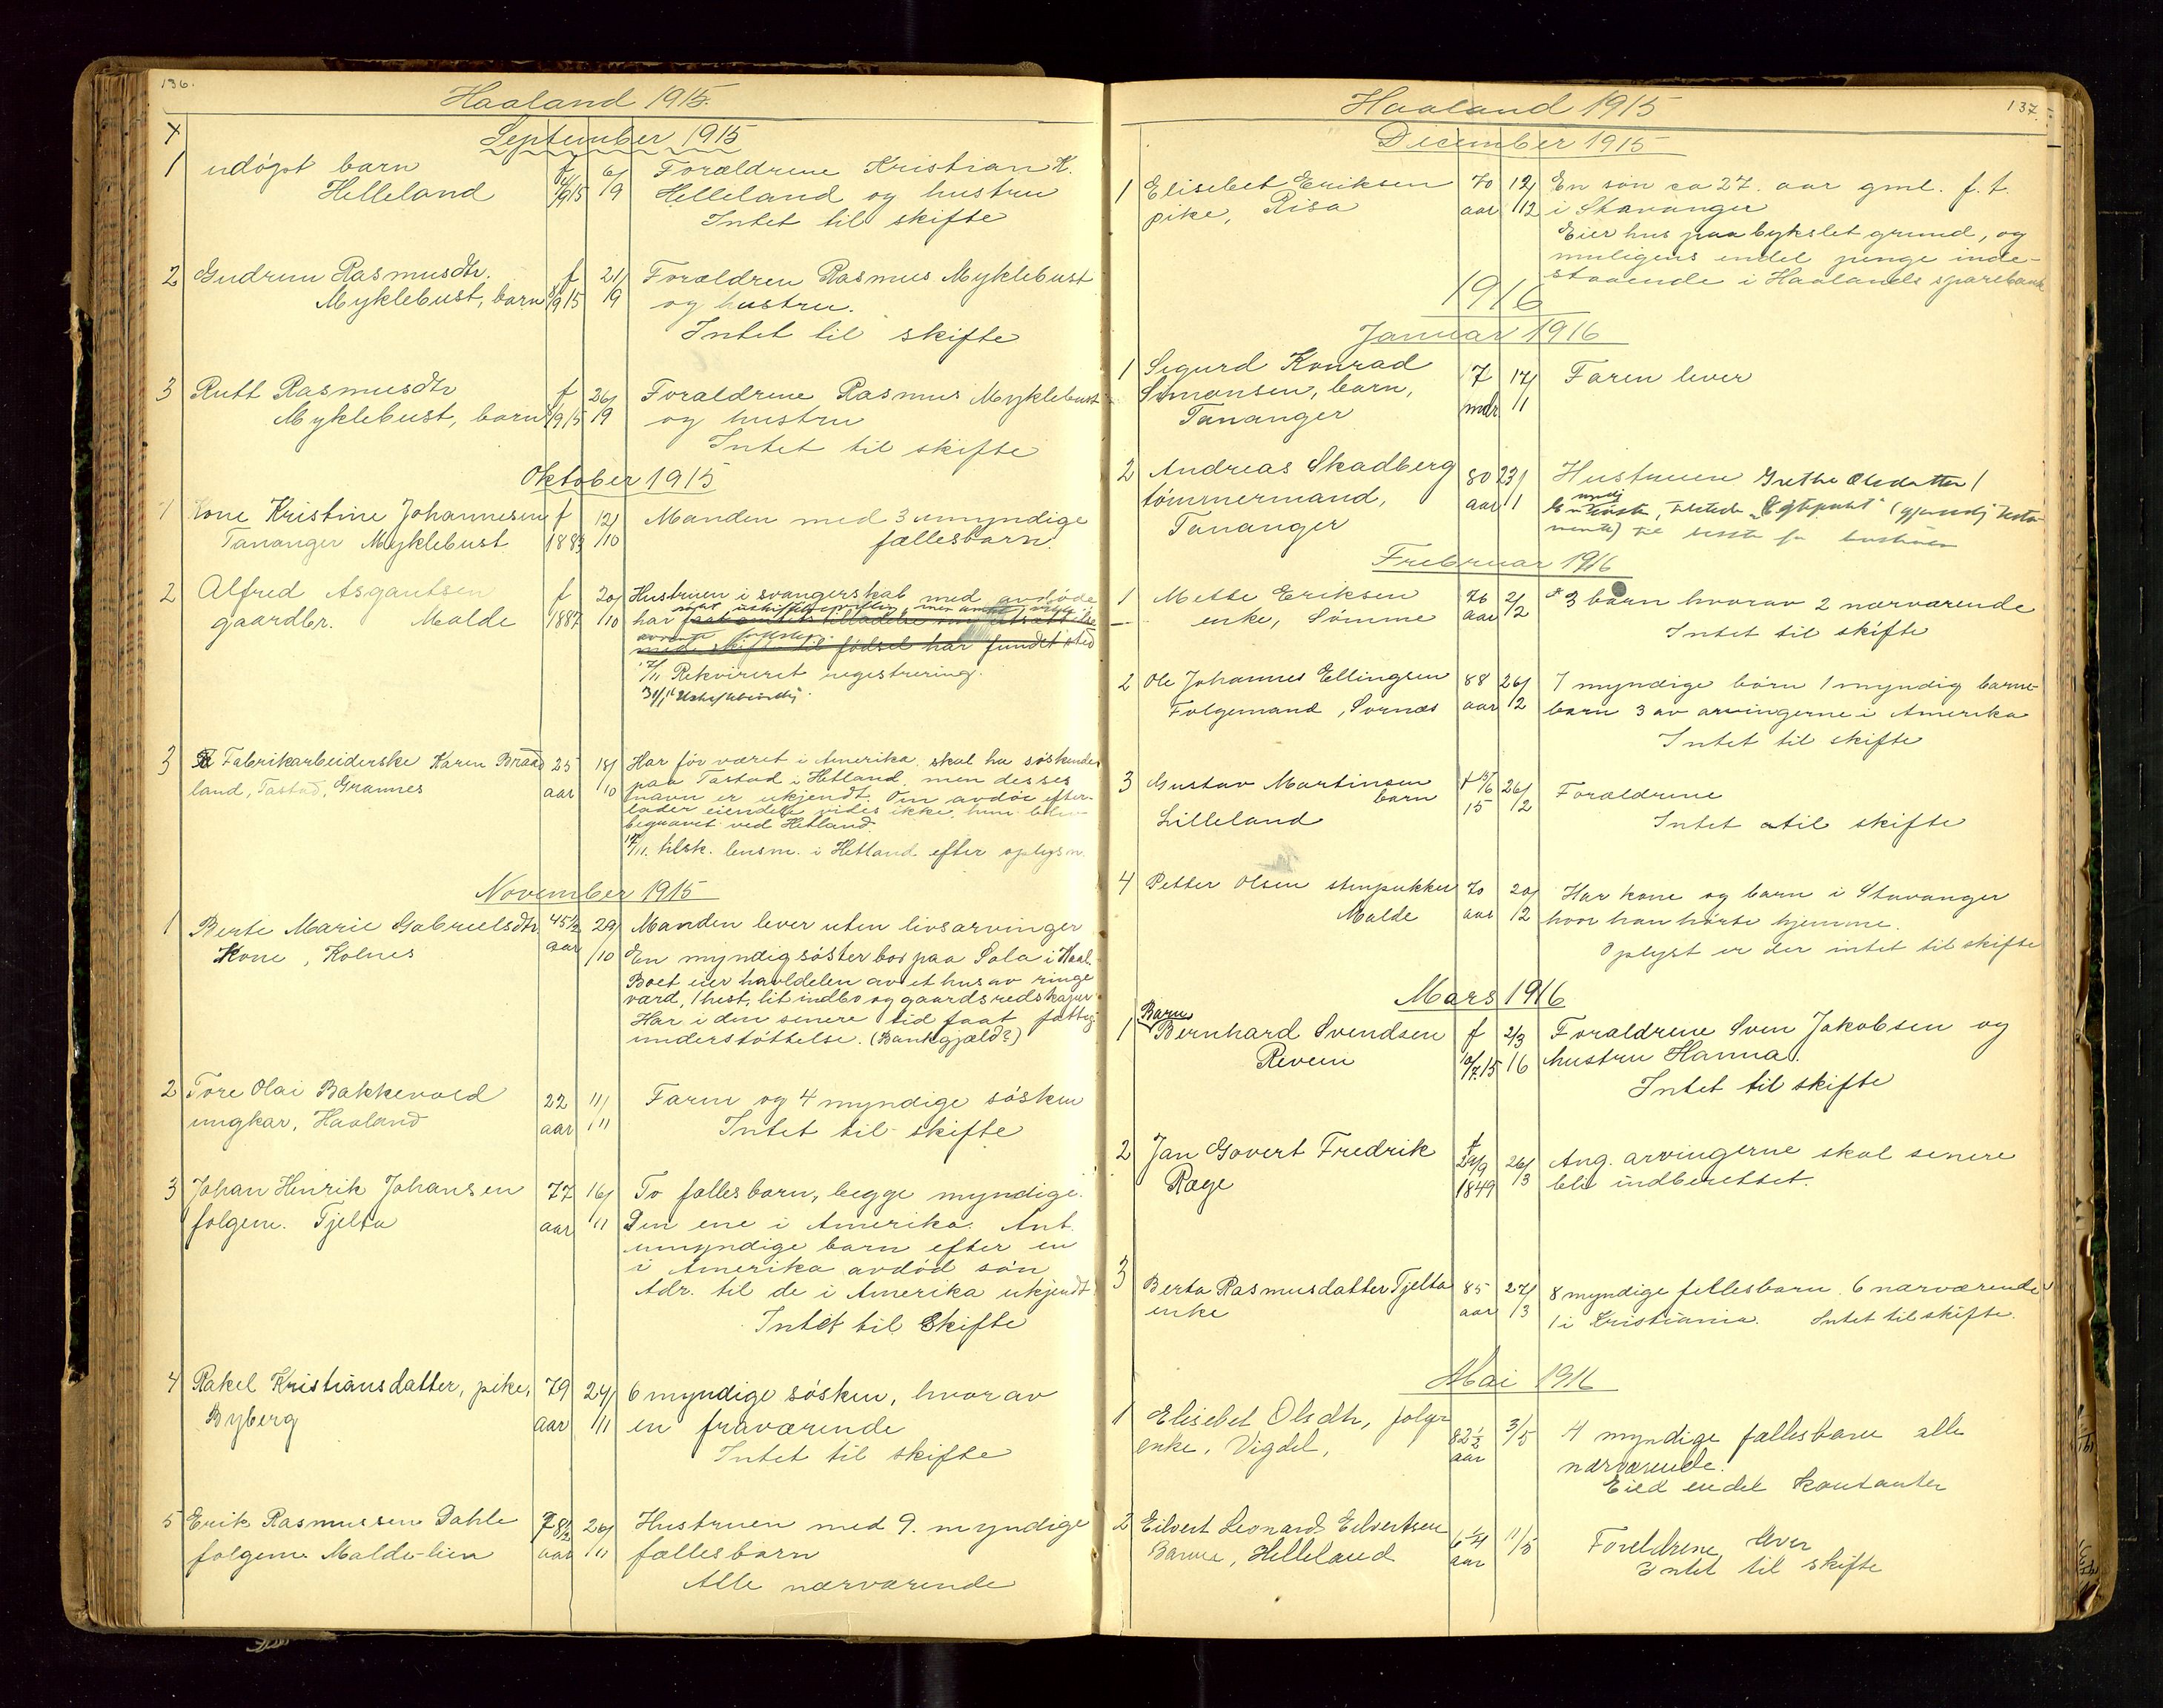 136.
Haaland 1915.
September 1915
1 udøpt barn f 6/ Forældrene Kristian K.
Helleland 19 Helleland og hustru
Intet til skifte
2 Gudrun Rasmusdtr. f 21/ Forældren Rasmus Myklebust
Myklebust, barn 9 15 19 og hustru.
Intet til skifte
3 Rutt Rasmusdtr f 26/ Forældrene Rasmus Myklebust
Myklebust, barn 9 15 19 og hustru
Intet til skifte
Oktober 1915
1 Kone Kristine Johannesen f 12/ Manden med 3 umyndige
Tananger Myklebust 1883 /10 fællesbarn.
2 Alfred Asgautsen f 20/ Hustruen i svangerskab med avdøde
gaardbr. Malde 1887 /10 har faat amtets tilladelse
med skifte til fødsel har fundet sted
/11 Rekvireret registrering.
3 Fabrikarbeiderske Karen Braad 25 18/ Har før været i Amerika, skal ha søskende
land, Tastad, Grannes aar /10 paa Tastad i Hetland, men desses
navn er ukjendt. Om avdøe efter-
lader eiendele vites ikke, hun blev
begravet ved Hetland.
17/11. tilsk. lensm. i Hetland efter oplysn.
November 1915
1 Berte Marie Gabrielsdtr 45½ 29/ Manden lever uten livsarvinger
Kone, Kolnes aar /10 En myndig søster bor paa Sola i Haal.
Boet eier havldelen av et hus av ringe
værd, 1 hest, lit indbo og gaardsredskaper
Har i den senere tid faat fattig
understøttelse. (Bankgjæld?)
2 Tore Olai Bakkevold 22 11/ Faren og 4 myndige søsken
ungkar, Haaland aar /11 Intet til skifte
3 Johan Henrik Johansen 77 16/ To fællesbarn, begge myndige.
følgem. Tjelta aar /11 Den ene i Amerika. Ant.
umyndige barn efter en
i Amerika avdød søn
Adr. til de i Amerika ukjendt
Intet til Skifte
4 Rakel Kristiansdatter, pike, 79 24/ 6 myndige søsken, hvorav
Byberg aar /11 en fraværende
Intet til skifte
5 Erik Rasmussen Dahle 78½ 26/ Hustruen med 9. myndige
følgem. Malde-lien aar /11 fællesbarn
Alle nærværende
137.
Haaland 1915
December 1915
1 Elisebet Eriksen 70 12/ En søn ca 27. aar gml. f. t.
pike, Risa aar /12 i Stavanger
Eier hus paa bykslet grund, og
muligens endel penge inde-
staaende i Haalands sparebank
1916
Januar 1916
1 Sigurd Konrad 7 17/ Faren lever
Simonsen, barn, mdr /1
Tananger
2 Andreas Skadberg 80 23/ Hustruen Grethe Olsdatter
tømmermand, aar /1
Tananger
Frebruar 1916
1 Mette Eriksen 76 2/ 3 barn hvorav 2 nærværende
enke, Sømme aar /2 Intet til skifte
2 Ole Johannes Ellingsen 88 26/ 7 myndige børn 1 myndig barne-
Følgemand, Sørnæs aar /2 barn 3 av arvingerne i Amerika
Intet til skifte
3 Gustav Martinsen 26/ Forældrene
barn 15 /2
Lilleland Intet til skifte
4 Petter Olsen stenpukker 70 20/ Har kone og barn i Stavanger
Malde aar /2 hvor han hørte hjemme.
Oplyst er der intet til skifte
Mars 1916
Barn
1 Bernhard Svendsen f 2/3 Forældrene Sven Jakobsen og
Reven 10/7.15 16 hustru Hanna.
Intet til skifte
2 Jan Govert Fredrik f 26/ Ang. arvingerne skal senere
Ræge 24/9 1849 /3 bli indberettet.
3 Berta Rasmusdatter Tjelta 85 27/ 8 myndige fellesbarn. 6 nærværende
enke aar /3 1 i Kristiania. Intet til skifte.
Mai 1916
1 Elisebet Olsdtr, følge 82½ 3/5 4 myndige fællesbarn alle
enke, Vigdel, aar nærværende.
Eied endel kontanter
2 Eilvert Leonard Eilvertsen 6¼ 11/5 Foreldrene lever
Barne, Helleland aar Intet til skifte